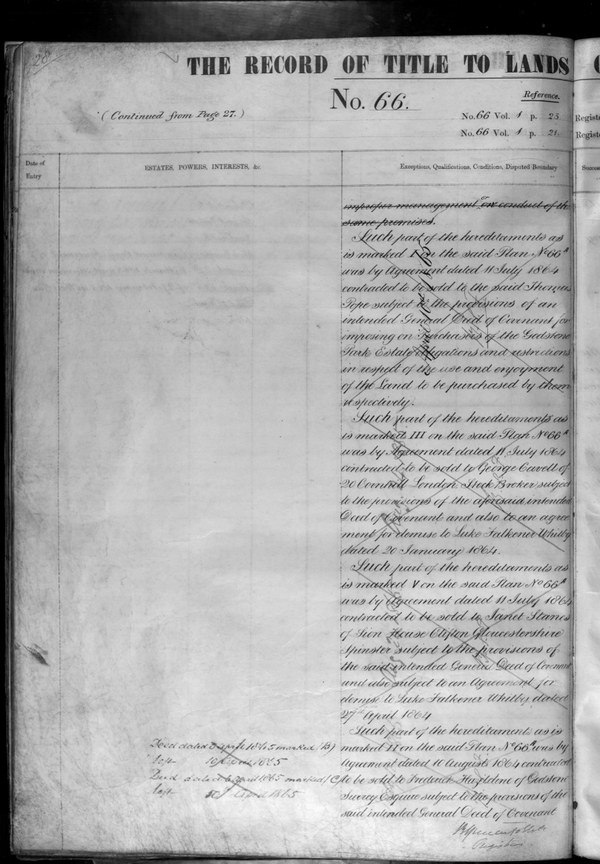 28
THE RECORD OF TITLE TO LANDS
No. 66.
Reference.
(Continued from Page 27.)
No. 66 Vol. 1 p. 23
No. 66 Vol. 1 p. 21
Registe
Registe
Date of
Entry
ESTATES, POWERS, INTERESTS, &c.
Exceptions, Qualifications, Conditions, Disputed Boundary
improper management or conduct of the
same premises.
Such part of the hereditaments as
is marked I on the said Plan No 66A
was by Agreement dated 11 July 1864
contracted to be sold to the said Thomas
Pope subject to the provisions of an
intended General Deed of Covenant for
imposing on Purchasers of the Godstone
Park Estate obligations and restrictions
in respect of the use and enjoyment
of the Land to be purchased by them
respectively.
Such part of the hereditaments as
is marked III on the said Plan No 66A
was by Agreement dated 11 July 1864
contracted to be sold to George Cavell of
20 Cornhill London Stock Broker subject
to the provisions of the aforesaid intended
Deed of Covenant and also to an agree
ment for demise to Luke Falkener Whitby
dated 20 January 1864.
Such part of the hereditaments as
is marked V on the said Plan No 66A
was by Agreement dated 11 July 1864
contracted to be sold to Janet Stanes
of Sion House Clifton Gloucestershire
Spinster subject to the provisions of
the said intended General Deed of Covenant
and also subject to an Agreement for
demise to Luke Falkener Whitby dated
27th April 1864
Such part of the hereditaments as is
marked II on the said Plan No 66A was by
Agreement dated 10 August 1864 contracted
to be sold to Frederic Hazeldene of Godstone
Surrey Esquire subject to the provisions of the
said intended General Deed of Covenant
Deed dated April 1865 marked B)
April 1865
Deed dated April 1865 marked (C)
April 1865
Registrar